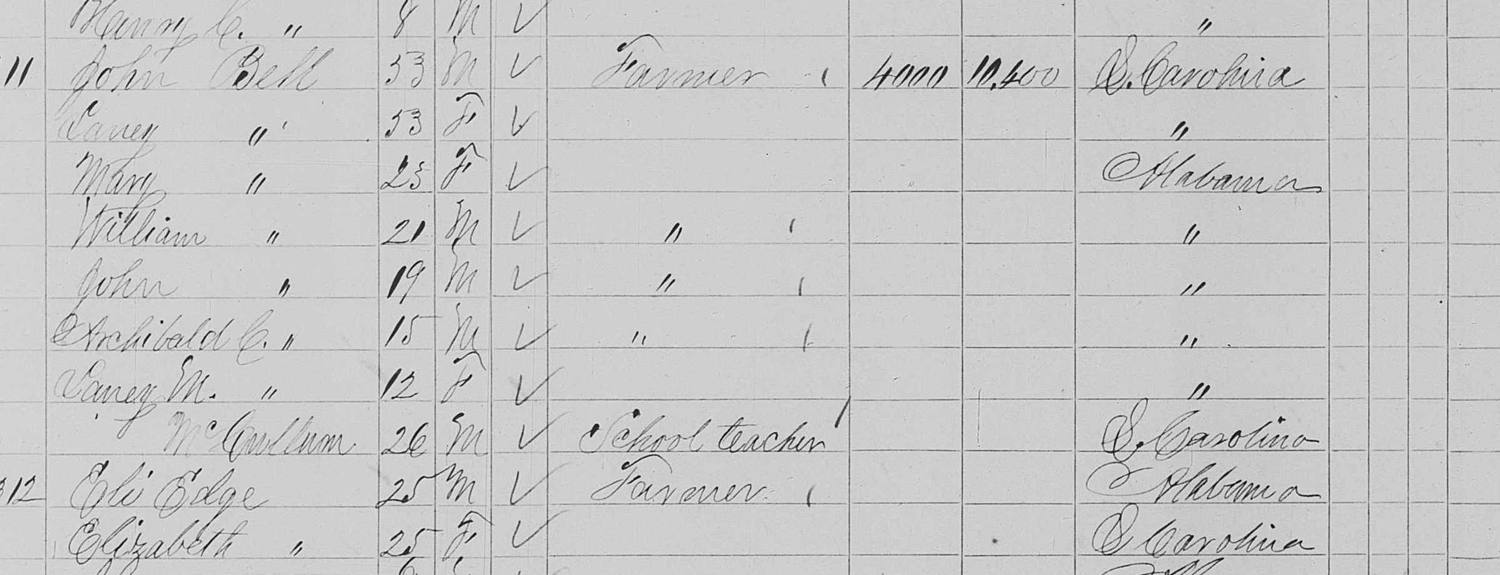 Henry C. " 8 M ✓ "
11 John Bell 53 M ✓ Farmer 4000 10,400 S. Carolina
" 53 F ✓ "
Mary " 23 F ✓ Alabama
William " 21 M ✓ " "
John " 19 M ✓ " "
Archibald C. " 15 M ✓ " "
M. " 12 F ✓ "
McCullum 26 M ✓ School teacher S. Carolina
12 Eli Edge 25 M ✓ Farmer Alabama
Elizabeth " 25 F ✓ S Carolina